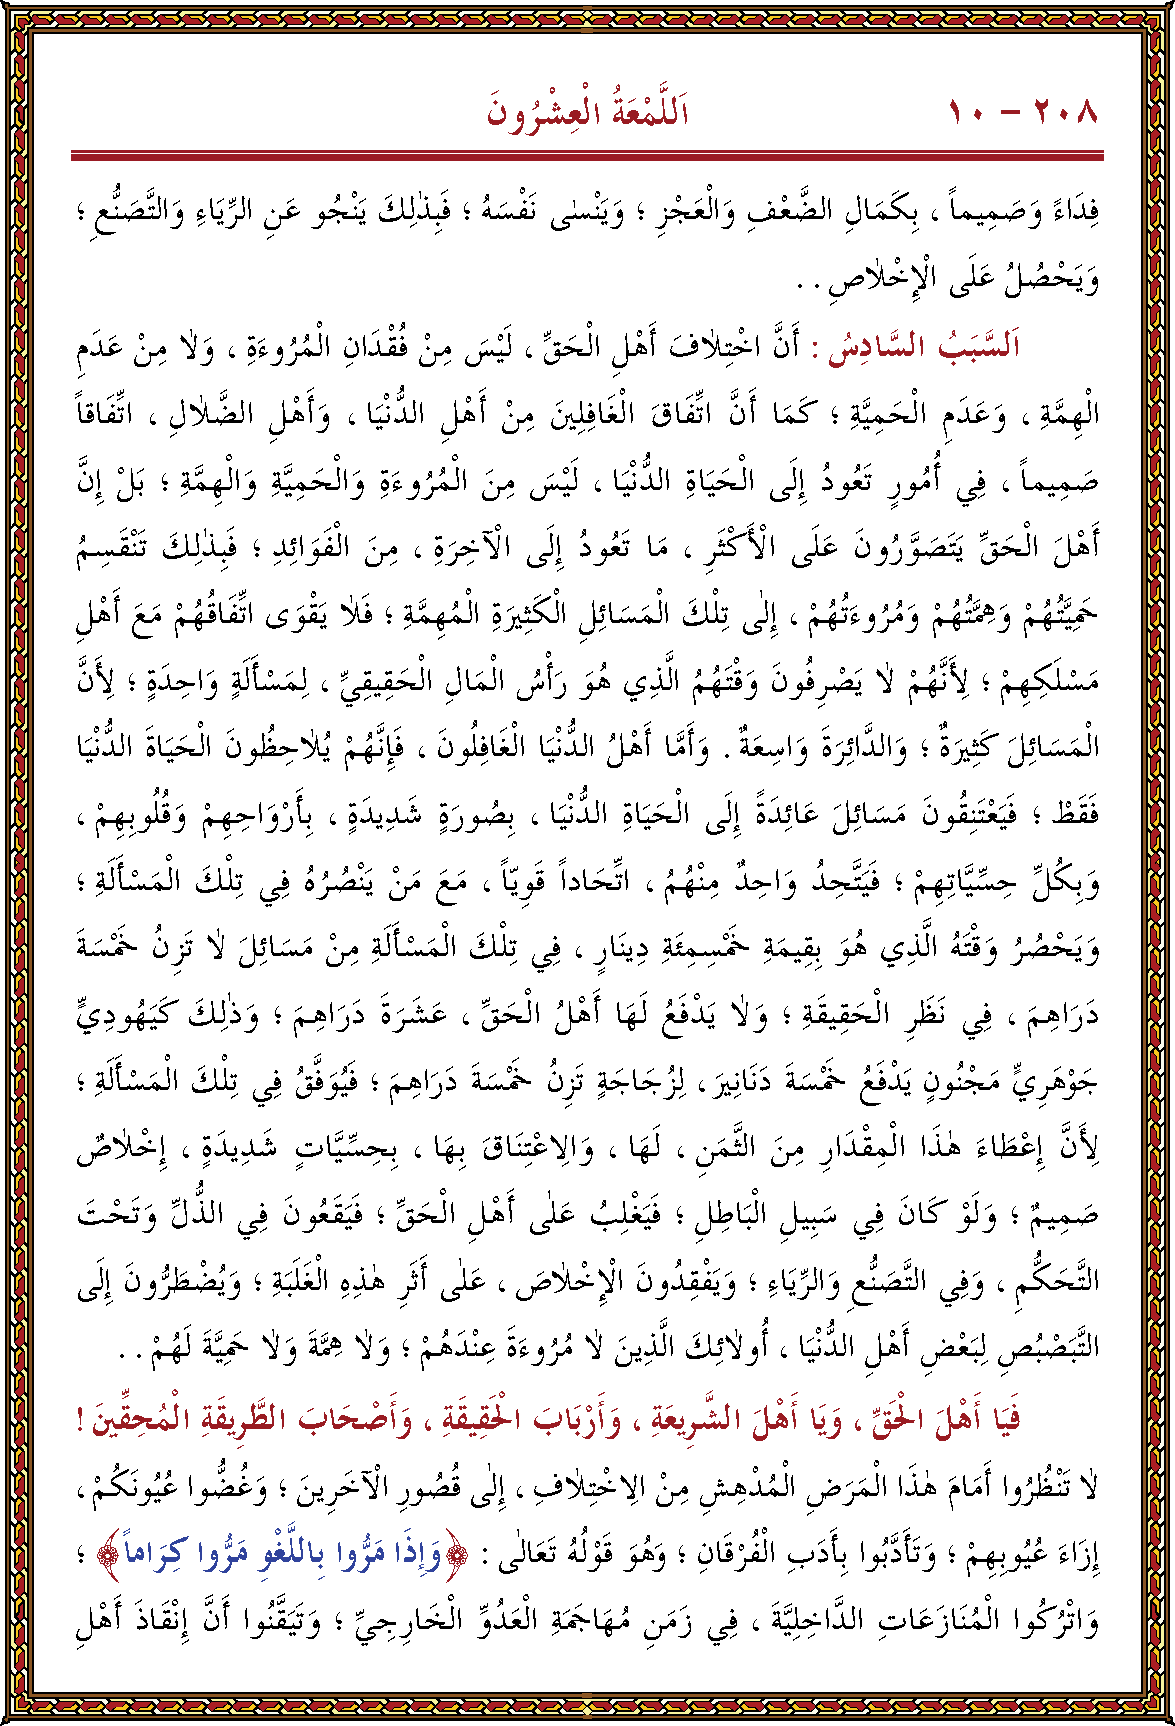 ٢٠٨ – ١٠ اَللَّمْعَةُ الْعِشْرُونَ
فِدَاءً وَصَمِيماً ، بِكَمَالِ الضَّعْفِ وَالْعَجْزِ ؛ وَيَنْسٰى نَفْسَهُ ؛ فَبِذٰلِكَ يَنْجُو عَنِ الرِّيَاءِ وَالتَّصَنُّعِ ؛
وَيَحْصُلُ عَلَى الْإِخْلَاصِ . .
اَلسَّبَبُ السَّادِسُ : أَنَّ اخْتِلَافَ أَهْلِ الْحَقِّ ، لَيْسَ مِنْ فُقْدَانِ الْمُرُوءَةِ ، وَلَا مِنْ عَدَمِ
الْهِمَّةِ ، وَعَدَمِ الْحَمِيَّةِ ؛ كَمَا أَنَّ اتِّفَاقَ الْغَافِلِينَ مِنْ أَهْلِ الدُّنْيَا ، وَأَهْلِ الضَّلَالِ ، اتِّفَاقاً
صَمِيماً ، فِي أُمُورٍ تَعُودُ إِلَى الْحَيَاةِ الدُّنْيَا ، لَيْسَ مِنَ الْمُرُوءَةِ وَالْحَمِيَّةِ وَالْهِمَّةِ ؛ بَلْ إِنَّ
أَهْلَ الْحَقِّ يَتَصَوَّرُونَ عَلَى الْأَكْثَرِ ، مَا تَعُودُ إِلَى الْآخِرَةِ ، مِنَ الْفَوَائِدِ ؛ فَبِذٰلِكَ تَنْقَسِمُ
حَمِيَّتُهُمْ وَهِمَّتُهُمْ وَمُرُوءَتُهُمْ ، إِلٰى تِلْكَ الْمَسَائِلِ الْكَثِيرَةِ الْمُهِمَّةِ ؛ فَلَا يَقْوَى اتِّفَاقُهُمْ مَعَ أَهْلِ
مَسْلَكِهِمْ ؛ لِأَنَّهُمْ لَا يَصْرِفُونَ وَقْتَهُمُ الَّذِي هُوَ رَأْسُ الْمَالِ الْحَقِيقِيِّ ، لِمَسْأَلَةٍ وَاحِدَةٍ ؛ لِأَنَّ
الْمَسَائِلَ كَثِيرَةٌ ؛ وَالدَّائِرَةَ وَاسِعَةٌ . وَأَمَّا أَهْلُ الدُّنْيَا الْغَافِلُونَ ، فَإِنَّهُمْ يُلَاحِظُونَ الْحَيَاةَ الدُّنْيَا
فَقَطْ ؛ فَيَعْتَنِقُونَ مَسَائِلَ عَائِدَةً إِلَى الْحَيَاةِ الدُّنْيَا ، بِصُورَةٍ شَدِيدَةٍ ، بِأَرْوَاحِهِمْ وَقُلُوبِهِمْ ،
وَبِكُلِّ حِسِّيَّاتِهِمْ ؛ فَيَتَّحِدُ وَاحِدٌ مِنْهُمُ ، اتِّحَاداً قَوِيّاً ، مَعَ مَنْ يَنْصُرُهُ فِي تِلْكَ الْمَسْأَلَةِ ؛
وَيَحْصُرُ وَقْتَهُ الَّذِي هُوَ بِقِيمَةِ خَمْسِمِئَةِ دِينَارٍ ، فِي تِلْكَ الْمَسْأَلَةِ مِنْ مَسَائِلَ لَا تَزِنُ خَمْسَةَ
دَرَاهِمَ ، فِي نَظَرِ الْحَقِيقَةِ ؛ وَلَا يَدْفَعُ لَهَا أَهْلُ الْحَقِّ ، عَشَرَةَ دَرَاهِمَ ؛ وَذٰلِكَ كَيَهُودِيٍّ
جَوْهَرِيٍّ مَجْنُونٍ يَدْفَعُ خَمْسَةَ دَنَانِيرَ ، لِزُجَاجَةٍ تَزِنُ خَمْسَةَ دَرَاهِمَ ؛ فَيُوَفَّقُ فِي تِلْكَ الْمَسْأَلَةِ ؛
لِأَنَّ إِعْطَاءَ هٰذَا الْمِقْدَارِ مِنَ الثَّمَنِ ، لَهَا ، وَالِاعْتِنَاقَ بِهَا ، بِحِسِّيَّاتٍ شَدِيدَةٍ ، إِخْلَاصٌ
صَمِيمٌ ؛ وَلَوْ كَانَ فِي سَبِيلِ الْبَاطِلِ ؛ فَيَغْلِبُ عَلٰى أَهْلِ الْحَقِّ ؛ فَيَقَعُونَ فِي الذُّلِّ وَتَحْتَ
التَّحَكُّمِ ، وَفِي التَّصَنُّعِ وَالرِّيَاءِ ؛ وَيَفْقِدُونَ الْإِخْلَاصَ ، عَلٰى أَثَرِ هٰذِهِ الْغَلَبَةِ ؛ وَيُضْطَرُّونَ إِلَى
التَّبَصْبُصِ لِبَعْضِ أَهْلِ الدُّنْيَا ، أُولَائِكَ الَّذِينَ لَا مُرُوءَةَ عِنْدَهُمْ ؛ وَلَا هِمَّةَ وَلَا حَمِيَّةَ لَهُمْ . .
فَيَا أَهْلَ الْحَقِّ ، وَيَا أَهْلَ الشَّرِيعَةِ ، وَأَرْبَابَ الْحَقِيقَةِ ، وَأَصْحَابَ الطَّرِيقَةِ الْمُحِقِّينَ !
لَا تَنْظُرُوا أَمَامَ هٰذَا الْمَرَضِ الْمُدْهِشِ مِنْ الِاخْتِلَافِ ، إِلٰى قُصُورِ الْآخَرِينَ ؛ وَغُضُّوا عُيُونَكُمْ ،
إِزَاءَ عُيُوبِهِمْ ؛ وَتَأَدَّبُوا بِأَدَبِ الْفُرْقَانِ ؛ وَهُوَ قَوْلُهُ تَعَالٰى : ﴿وَإِذَا مَرُّوا بِاللَّغْوِ مَرُّوا كِرَاماً﴾ ؛
وَاتْرُكُوا الْمُنَازَعَاتِ الدَّاخِلِيَّةَ ، فِي زَمَنِ مُهَاجَمَةِ الْعَدُوِّ الْخَارِجِيِّ ؛ وَتَيَقَّنُوا أَنَّ إِنْقَاذَ أَهْلِ